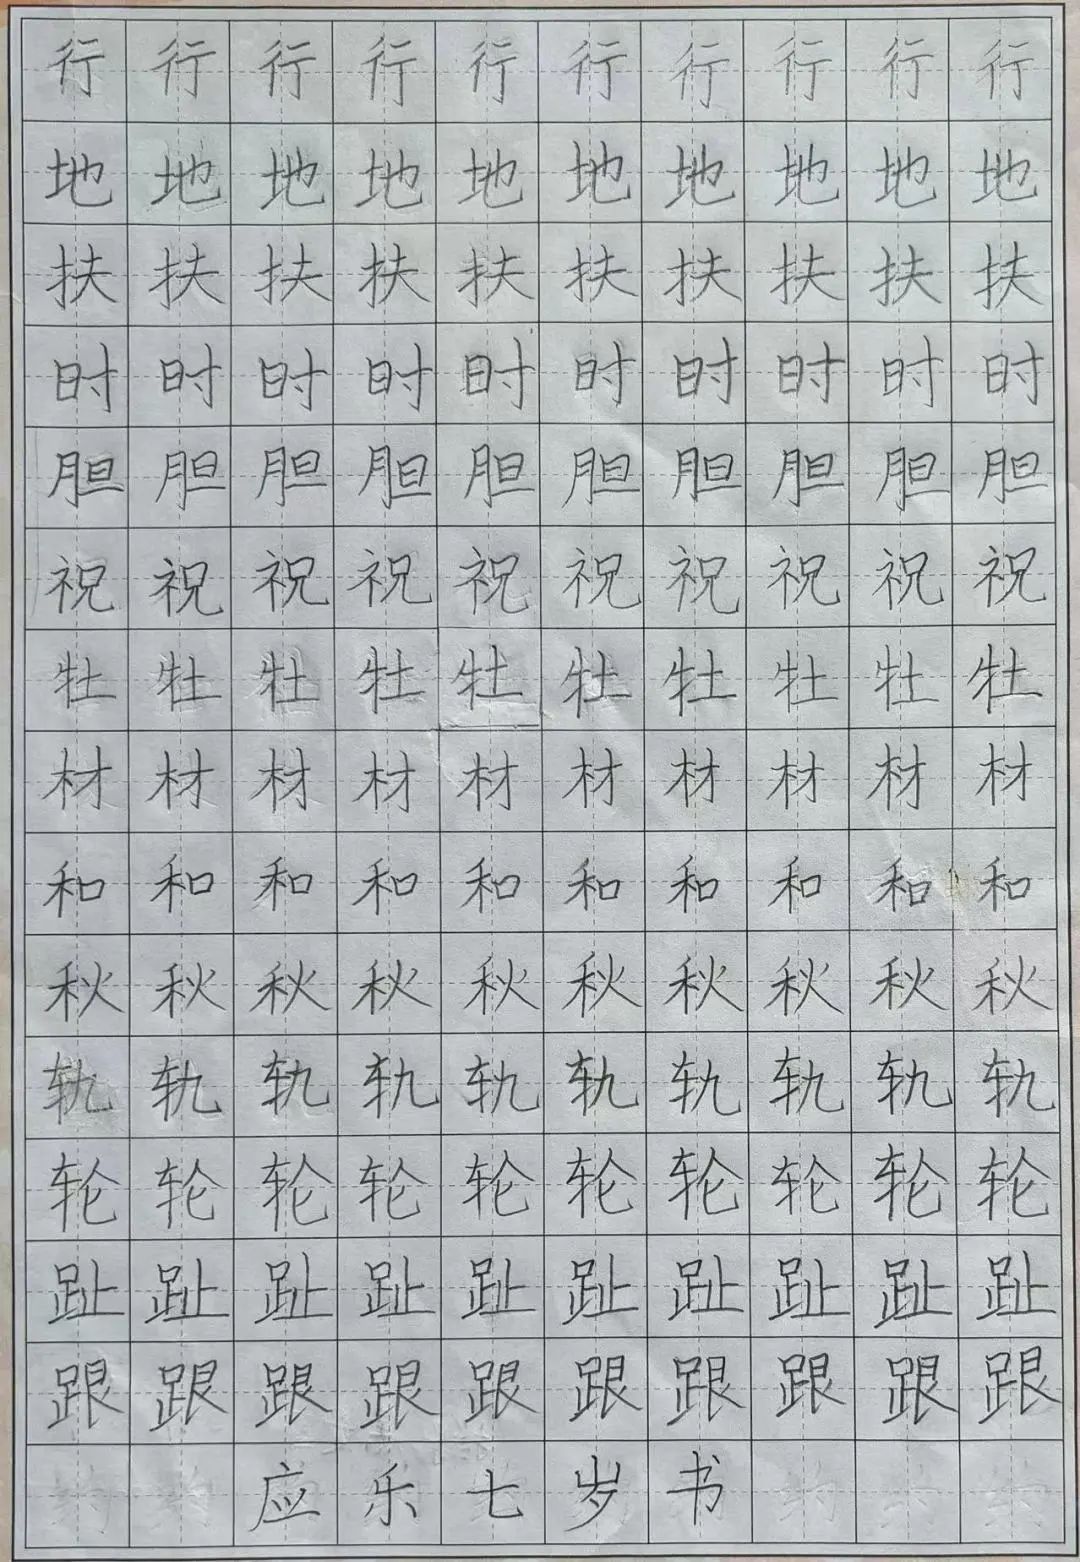 行行行行行行行行行行
地地地地地地地地地地
扶扶扶扶扶扶扶扶扶扶
时时时时时时时时时时
胆胆胆胆胆胆胆胆胆胆
祝祝祝祝祝祝祝祝祝祝
牡牡牡牡牡牡牡牡牡牡
材材材材材材材材材材
和和和和和和和和和和
秋秋秋秋秋秋秋秋秋秋
轨轨轨轨轨轨轨轨轨轨
轮轮轮轮轮轮轮轮轮轮
趾趾趾趾趾趾趾趾趾趾
跟跟跟跟跟跟跟跟跟跟
应乐七岁书